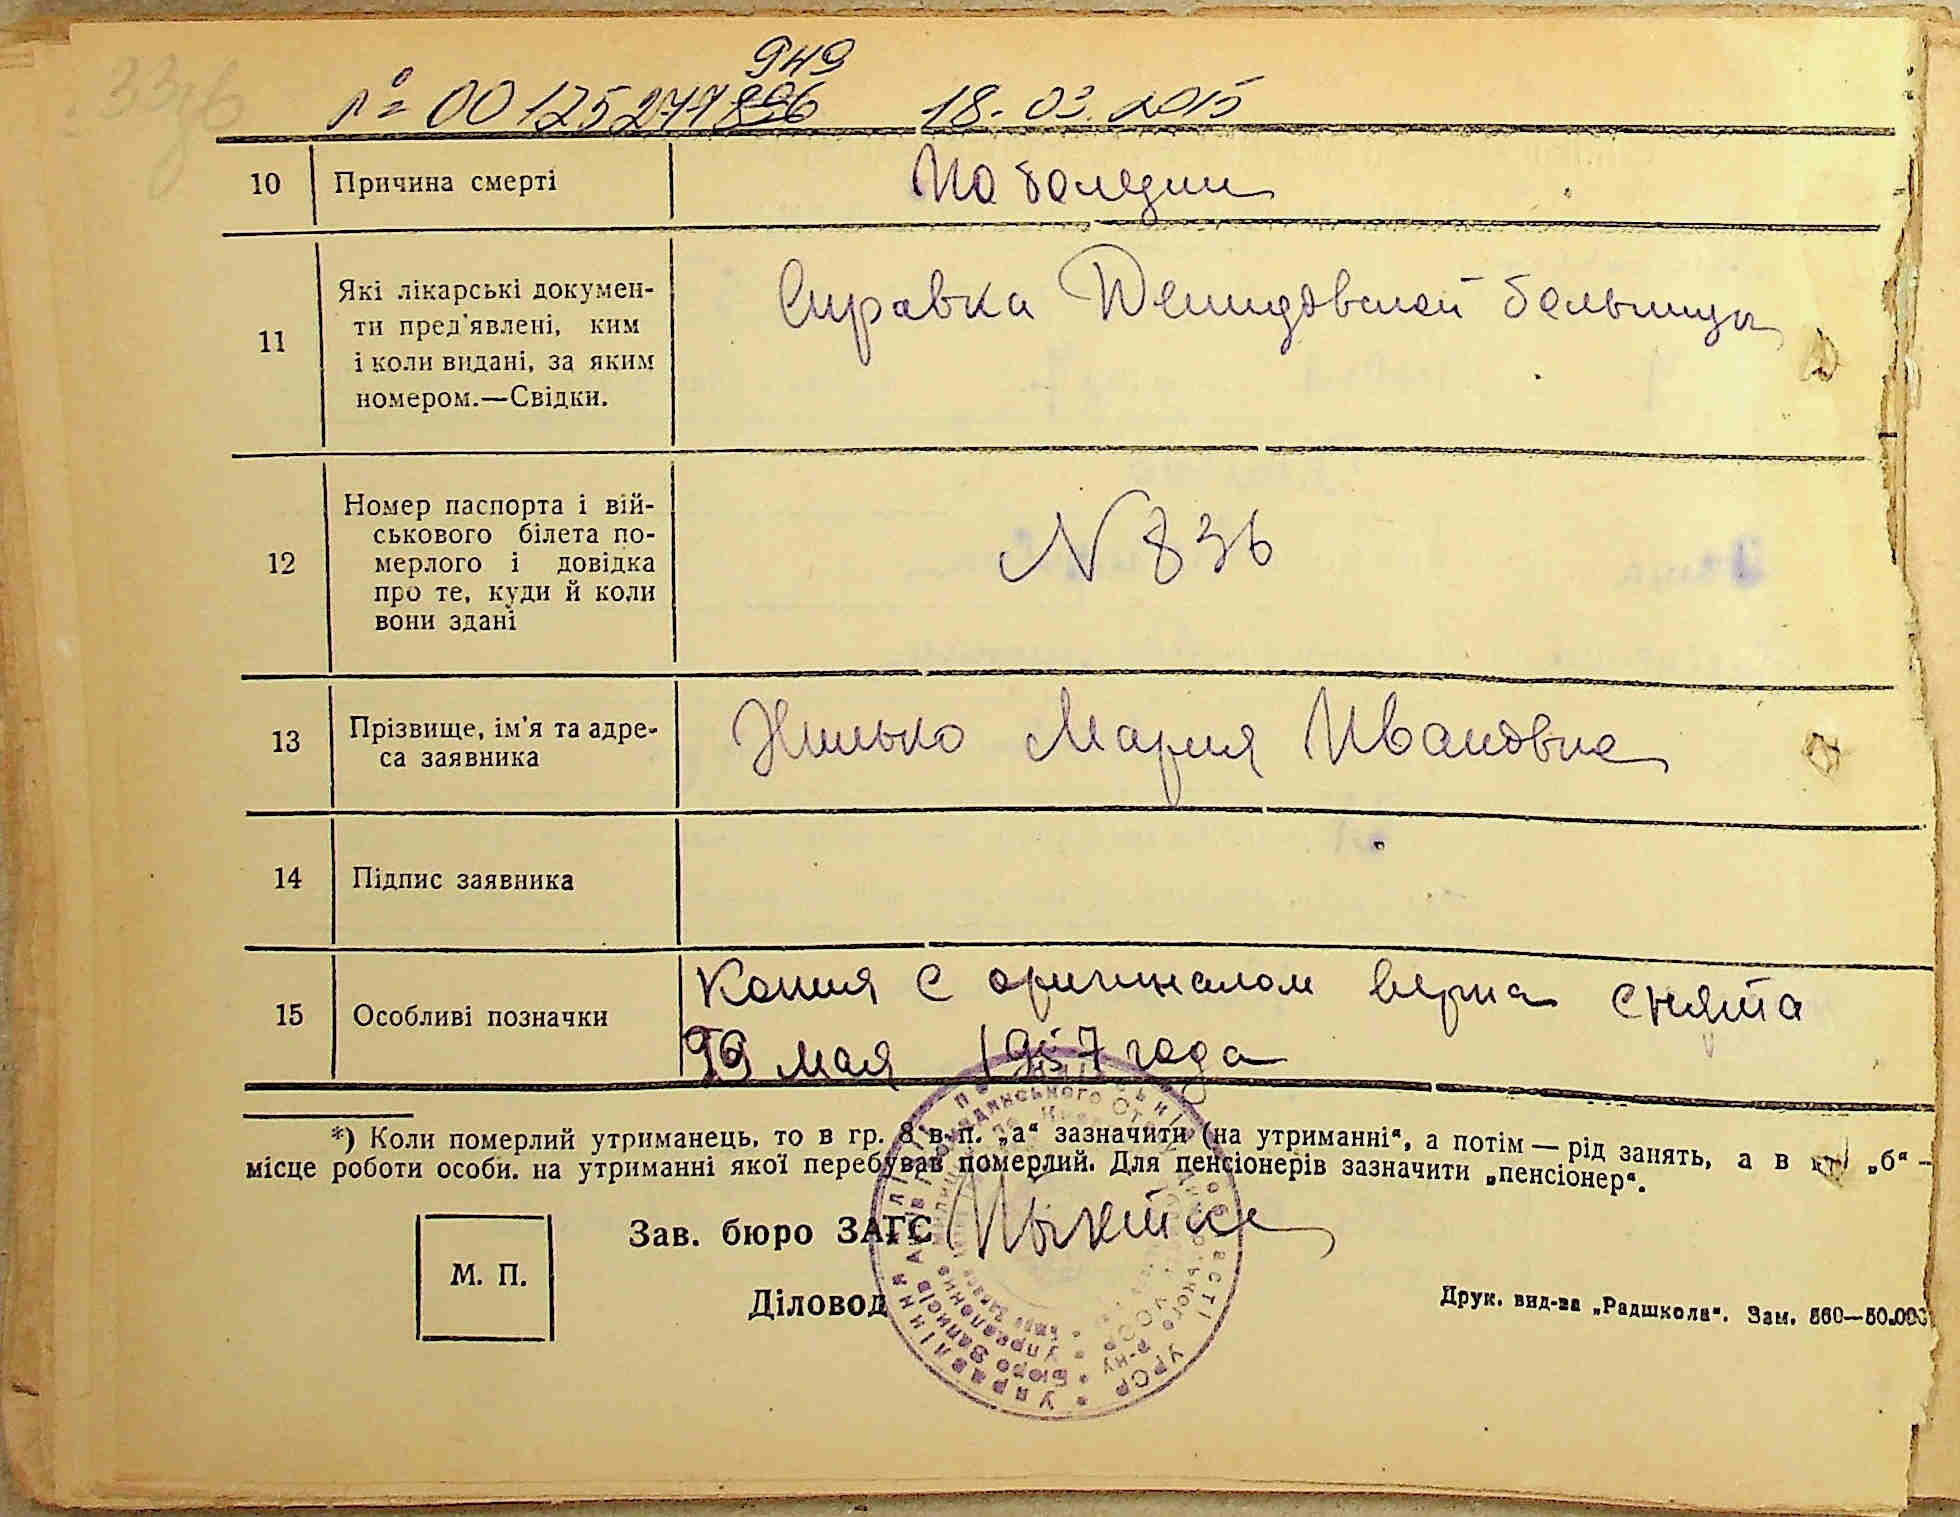 949
№ 00125277896 18.03.2015
10 Причина смерті
По болезни
11 Які лікарські докумен-
ти пред'явлені, ким
і коли видані, за яким
номером.—Свідки.
Справка Демидовской больницы
12 Номер паспорта і вій-
ськового білета по-
мерлого і довідка
про те, куди й коли
вони здані
N 836
13 Прізвище, ім'я та адре-
са заявника
Мария Ивановна
14 Підпис заявника
15 Особливі позначки
Копия с оригиналом верна снята
мая 1957 года
*) Коли померлий утриманець, то в гр. 8 в п. „а“ зазначити (на утриманні“, а потім — рід занять, а в „б“ —
місце роботи особи, на утриманні якої перебував померлий. Для пенсіонерів зазначити „пенсіонер“.
Зав. бюро ЗАГС
М. П.
Діловод
Друк. вид-ва „Радшкола“. Зам. 860—50.000